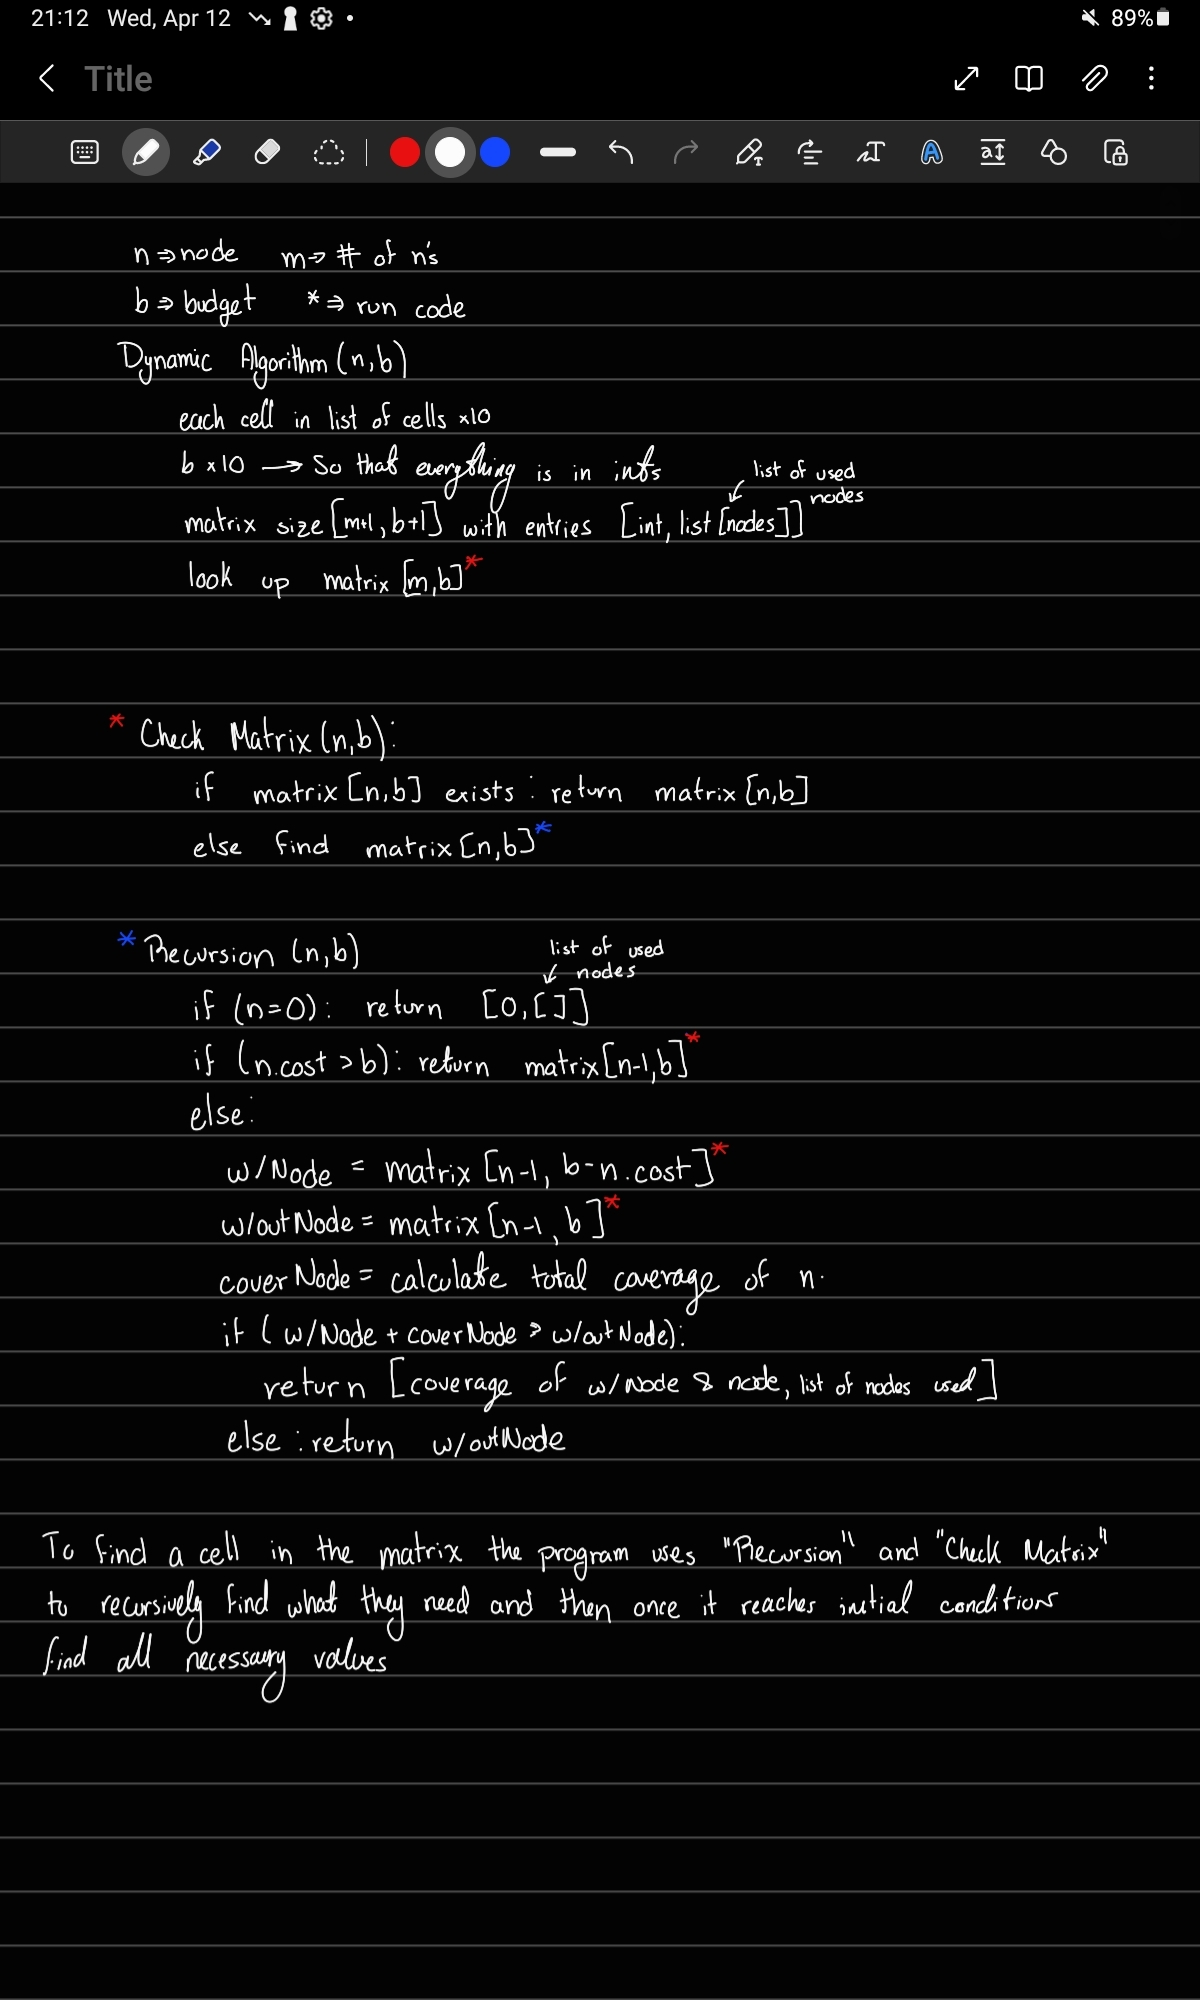 21:12 Wed, Apr 12 89%
Title
n ⇒ node m → # of n's
b ⇒ budget * ⇒ run code
Dynamic Algorithm (n,b)
each cell in list of cells ×10
b ×10 → So that everything is in ints
list of used
nodes
matrix size [m+1, b+1] with entries [int, list [nodes]]
look up matrix [m,b]*
* Check Matrix (n,b):
if matrix [n,b] exists: return matrix [n,b]
else find matrix [n,b]*
* Recursion (n,b)
list of used
nodes
if (n=0): return [0,[]]
if (n.cost > b): return matrix [n-1,b]*
else:
w/Node = matrix [n-1, b-n.cost]*
w/out Node = matrix [n-1, b]*
cover Node = calculate total coverage of n.
if ( w/Node + cover Node > w/out Node):
return [coverage of w/ Node & node, list of nodes used]
else : return w/out Node
To find a cell in the matrix the program uses "Recursion" and "Check Matrix"
to recursively find what they need and then once it reaches initial conditions
find all necessary values